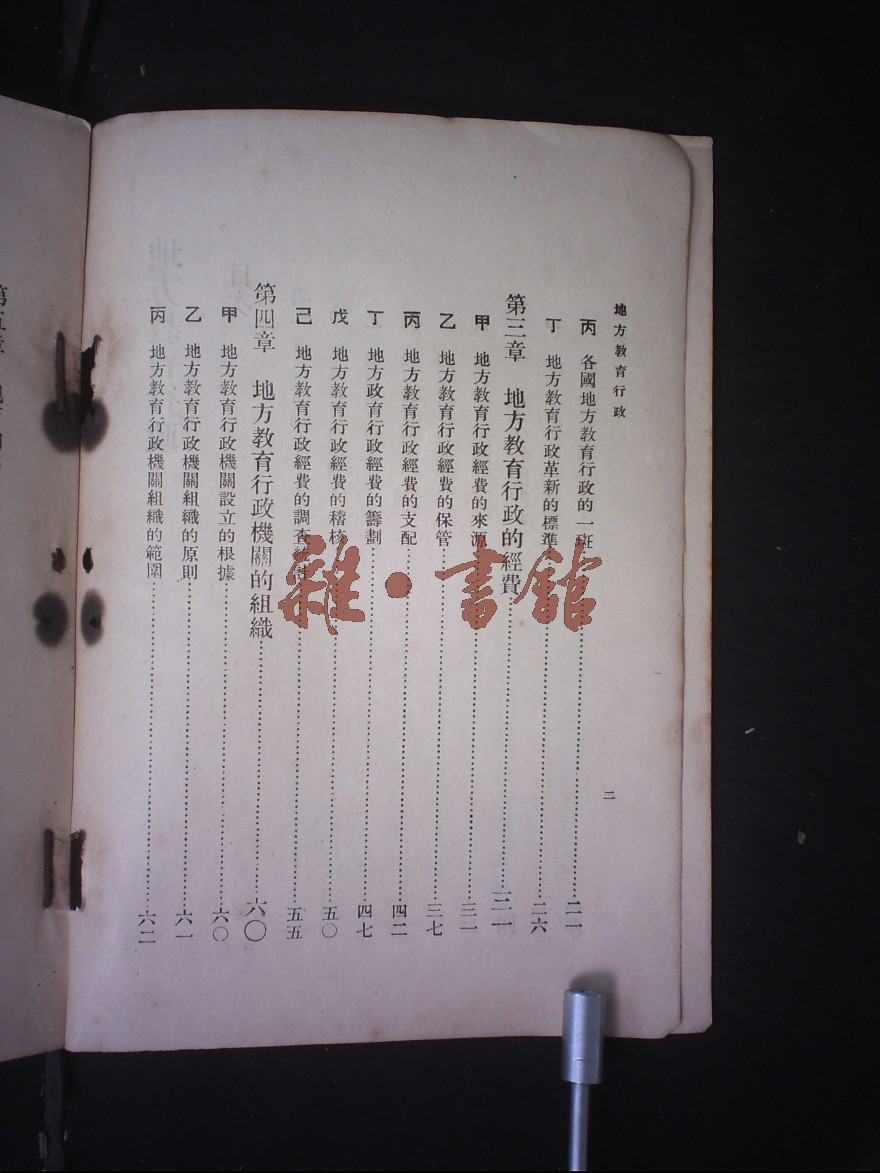 地方教育行政
二
丙 各國地方教育行政的一班……二一
丁 地方教育行政革新的標準……二六
第三章 地方教育行政的經費……三一
甲 地方教育行政經費的來源……三一
乙 地方教育行政經費的保管……三七
丙 地方教育行政經費的支配……四二
丁 地方政育行政經費的籌劃……四七
戊 地方教育行政經費的稽核……五〇
己 地方教育行政經費的調查……五五
第四章 地方教育行政機關的組織……六〇
甲 地方教育行政機關設立的根據……六〇
乙 地方教育行政機關組織的原則……六一
丙 地方教育行政機關組織的範圍……六二
雜·書館